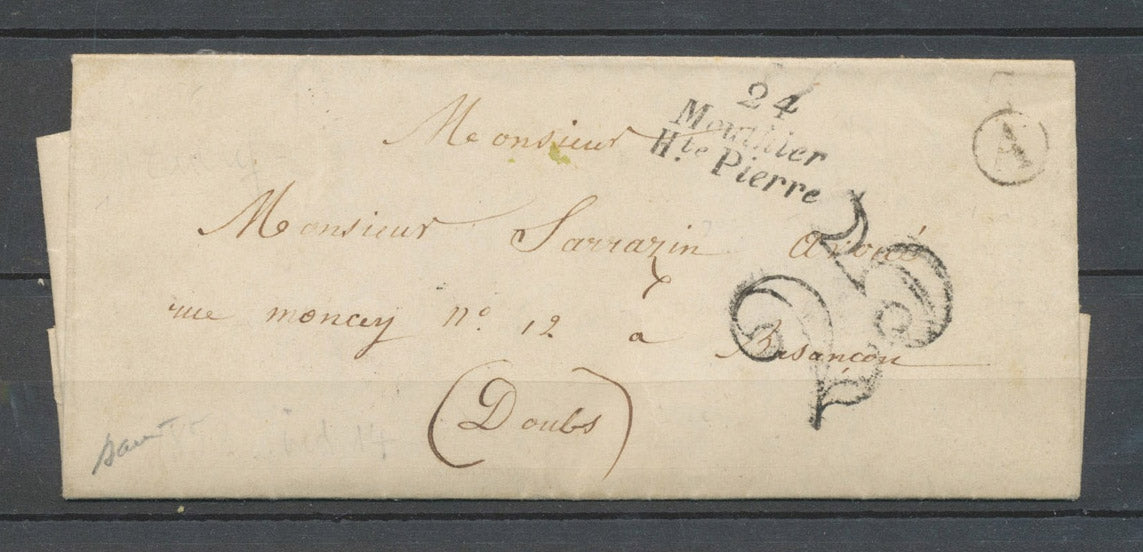 24
Mouthier
Hte Pierre
A
Monsieur
Monsieur Sarrazin avoué
rue moncey n° 12 à Besançon
(Doubs)
25